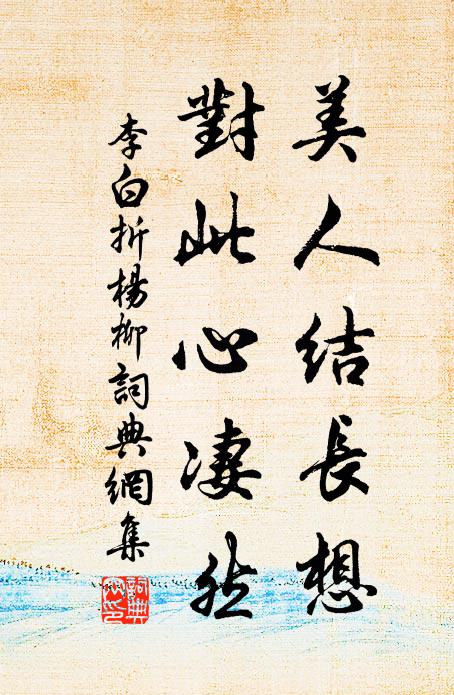 美人結長想
對此心凄然
李白折楊柳詞典網集